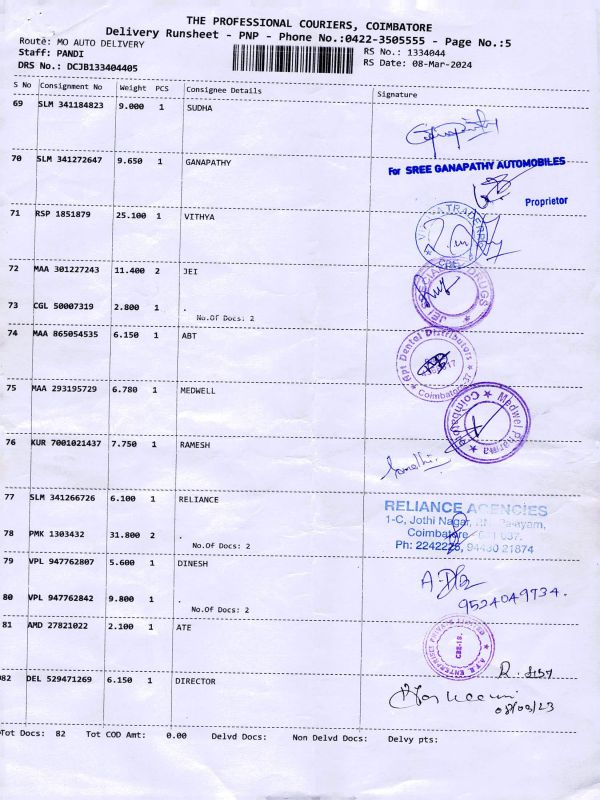 THE PROFESSIONAL COURIERS, COIMBATORE
Delivery Runsheet - PNP - Phone No.:0422-3505555 - Page No.:5
Route: MO AUTO DELIVERY
RS No.: 1334044
Staff: PANDI
RS Date: 08-Mar-2024
DRS No.: DCJB133404405
S No Consignment No Weight PCS Consignee Details Signature
69 SLM 341184823 9.000 1 SUDHA
70 SLM 341272647 9.650 1 GANAPATHY
For SREE GANAPATHY AUTOMOBILES
Proprietor
71 RSP 1851879 25.100 1 VITHYA
72 MAA 301227243 11.400 2 JEI
JEI SPECIALITY DRUGS
CBE
73 CGL 50007319 2.800 1 .
No.Of Docs: 2
74 MAA 865054535 6.150 1 ABT
Dental Distributors
Coimbatore-37
75 MAA 293195729 6.780 1 MEDWELL
Medwel Pharma
Coimbatore
76 KUR 7001021437 7.750 1 RAMESH
77 SLM 341266726 6.100 1 RELIANCE
RELIANCE AGENCIES
1-C, Jothi Nagar,
Coimbatore - 641 037.
Ph: 2242226, 94430 21874
78 PMK 1303432 31.800 2 .
No.Of Docs: 2
79 VPL 947762807 5.600 1 DINESH
9524049734.
80 VPL 947762842 9.800 1 .
No.Of Docs: 2
81 AMD 27821022 2.100 1 ATE
ENTERPRISES PRIVATE LIMITED
CBE-18.
82 DEL 529471269 6.150 1 DIRECTOR
08/03/23
Tot Docs: 82 Tot COD Amt: 0.00 Delvd Docs: Non Delvd Docs: Delvy pts: